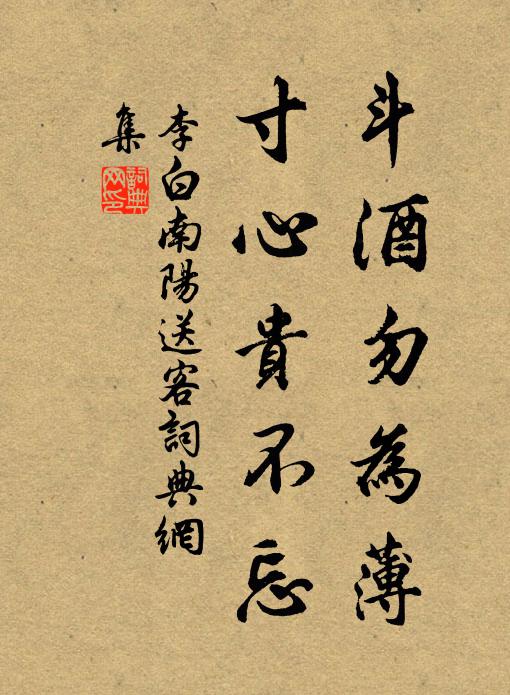 斗酒勿為薄
寸心貴不忘
李白南陽送客詞典網
集
詞典
网印